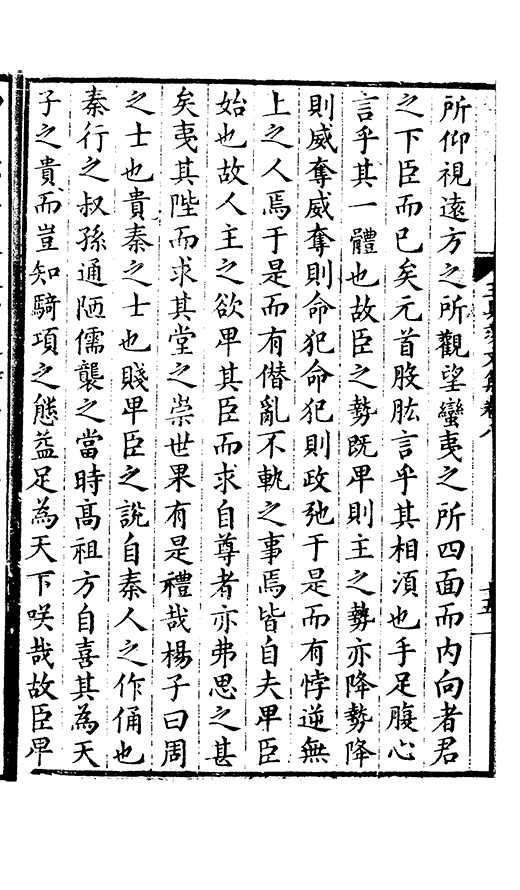 所仰視遠方之所觀望蠻夷之所四面而内向者君
之下臣而已矣元首股肱言乎其相湏也手足腹心
言乎其一體也故臣之勢既卑則主之勢亦降勢降
則威奪威奪則命犯命犯則政弛于是而有悖逆無
上之人焉于是而有僭亂不軌之事焉皆自夫卑臣
始也故人主之欲卑其臣而求自尊者亦弗思之甚
矣夷其陛而求其堂之崇世果有是禮哉楊子曰周
之士也貴秦之士也賤卑臣之說自秦人之作俑也
秦行之叔孫通陋儒襲之當時高祖方自喜其為天
子之貴而豈知騎項之態益足為天下咲哉故臣卑
文集卷八
十五